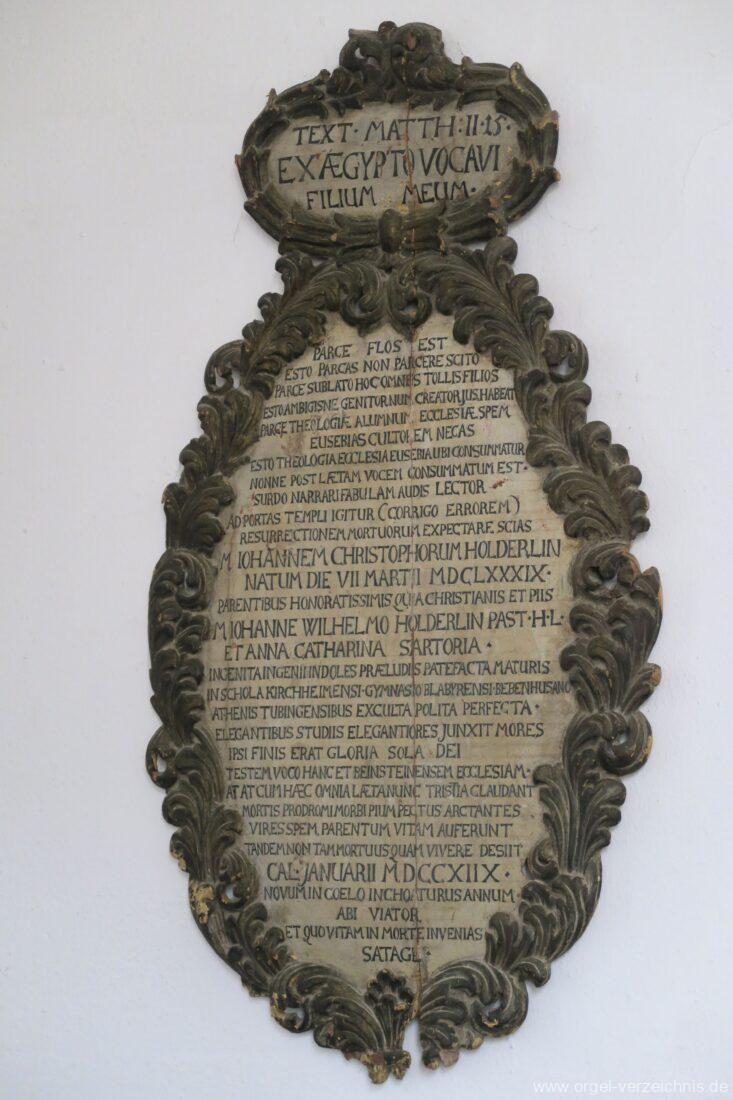 TEXT· MATTH: II·15·
EX ÆGYPTO VOCAVI
FILIUM MEUM·
PARCE FLOS EST
ESTO PARCAS NON PARCERE SCITO
PARCE SUBLATO HOC OMNES TOLLIS FILIOS
ESTO AMBIGIS NE GENITOR NUM CREATOR JUS HABEAT
PARCE THEOLOGIÆ ALUMNUM ECCLESIÆ SPEM
EUSEBIAS CULTOREM NECAS
ESTO THEOLOGIA ECCLESIA EUSEBIA UBI CONSUMMATUR
NONNE POST LÆTAM VOCEM CONSUMMATUM EST·
SURDO NARRARI FABULAM AUDIS LECTOR
AD PORTAS TEMPLI IGITUR (CORRIGO ERROREM)
RESURRECTIONEM MORTUORUM EXPECTARE SCIAS
M IOHANNEM CHRISTOPHORUM HOLDERLIN
NATUM DIE VII MARTII MDCLXXXIX·
PARENTIBUS HONORATISSIMIS QUIA CHRISTIANIS ET PIIS
M IOHANNE WILHELMO HOLDERLIN PAST·H·L·
ET ANNA CATHARINA SARTORIA·
INGENITA INGENII INDOLES PRÆLUDIS PATEFACTA MATURIS
IN SCHOLA KIRCHHEIMENSI·GYMNASIO BLABYRENSI·BEBENHUSANO
ATHENIS TUBINGENSIBUS EXCULTA POLITA PERFECTA·
ELEGANTIBUS STUDIIS ELEGANTIORES JUNXIT MORES
IPSI FINIS ERAT GLORIA SOLA DEI
TESTEM VOCO HANC ET BEINSTEINENSEM ECCLESIAM·
AT AT CUM HÆC OMNIA LÆTA NUNC TRISTIA CLAUDANT
MORTIS PRODROMI MORBI PIUM PECTUS ARCTANTES
VIRES SPEM PARENTUM VITAM AUFERUNT
TANDEM NON TAM MORTUUS QUAM VIVERE DESIIT
CAL·JANUARII MDCCXIIX·
NOVUM IN COELO INCHOATURUS ANNUM·
ABI VIATOR
ET QUO VITAM IN MORTE INVENIAS
SATAGE·
www.orgel-verzeichnis.de